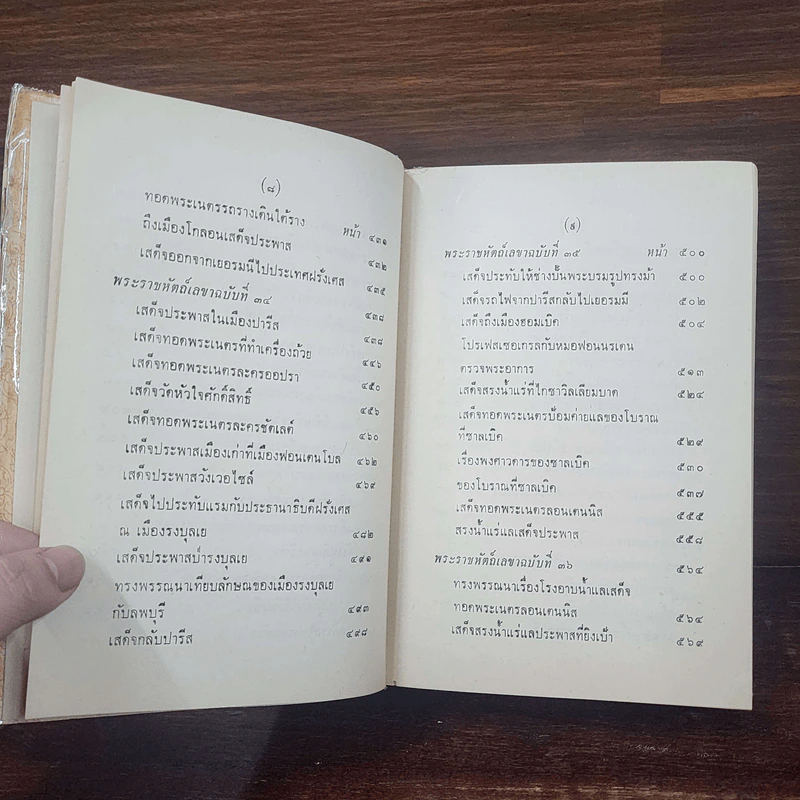 (๘)
หน้า
ทอดพระเนตรรถรางเดินใต้ราง ๔๓๑
ถึงเมืองโกลอนเสด็จประพาส ๔๓๒
เสด็จออกจากเยอรมนีไปประเทศฝรั่งเศส ๔๓๕
พระราชหัตถ์เลขาฉบับที่ ๓๔ ๔๓๘
เสด็จประพาสในเมืองปารีส ๔๓๘
เสด็จทอดพระเนตรที่ทำเครื่องถ้วย ๔๔๖
เสด็จทอดพระเนตรละครออปรา ๔๕๐
เสด็จวัดหัวใจศักดิ์สิทธิ์ ๔๕๖
เสด็จทอดพระเนตรละครชัตเลต์ ๔๖๐
เสด็จประพาสเมืองเก่าที่เมืองฟอนเตนโบล ๔๖๒
เสด็จประพาสวังเวอไซล์ ๔๖๙
เสด็จไปประทับแรมกับประธานาธิบดีฝรั่งเศส
ณ เมืองรงบุลเย ๔๘๒
เสด็จประพาสป่ารงบุลเย ๔๙๑
ทรงพรรณนาเทียบลักษณของเมืองรงบุลเย
กับลพบุรี ๔๙๓
เสด็จกลับปารีส ๔๙๘
(๙)
พระราชหัตถ์เลขาฉบับที่ ๓๕ หน้า ๕๐๐
เสด็จประทับให้ช่างปั้นพระบรมรูปทรงม้า ๕๐๐
เสด็จรถไฟจากปารีสกลับไปเยอรมนี ๕๐๒
เสด็จถึงเมืองฮอมเบิค ๕๐๔
โปรเฟสเซอเกรลกับหมอฟอนนรเดน
ตรวจพระอาการ ๕๑๓
เสด็จสรงน้ำแร่ที่ไกซาวิลเลียมบาด ๕๒๔
เสด็จทอดพระเนตรป้อมค่ายแลของโบราณ
ที่ซาลเบิค ๕๒๙
เรื่องพงศาวดารของซาลเบิค ๕๓๐
ของโบราณที่ซาลเบิค ๕๓๗
เสด็จทอดพระเนตรลอนเตนนิส ๕๕๕
สรงน้ำแร่แลเสด็จประพาส ๕๕๘
พระราชหัตถ์เลขาฉบับที่ ๓๖ ๕๖๔
ทรงพรรณนาเรื่องโรงอาบน้ำแลเสด็จ
ทอดพระเนตรลอนเตนนิส ๕๖๔
เสด็จสรงน้ำแร่แลประพาสที่ยิงเป้า ๕๖๙